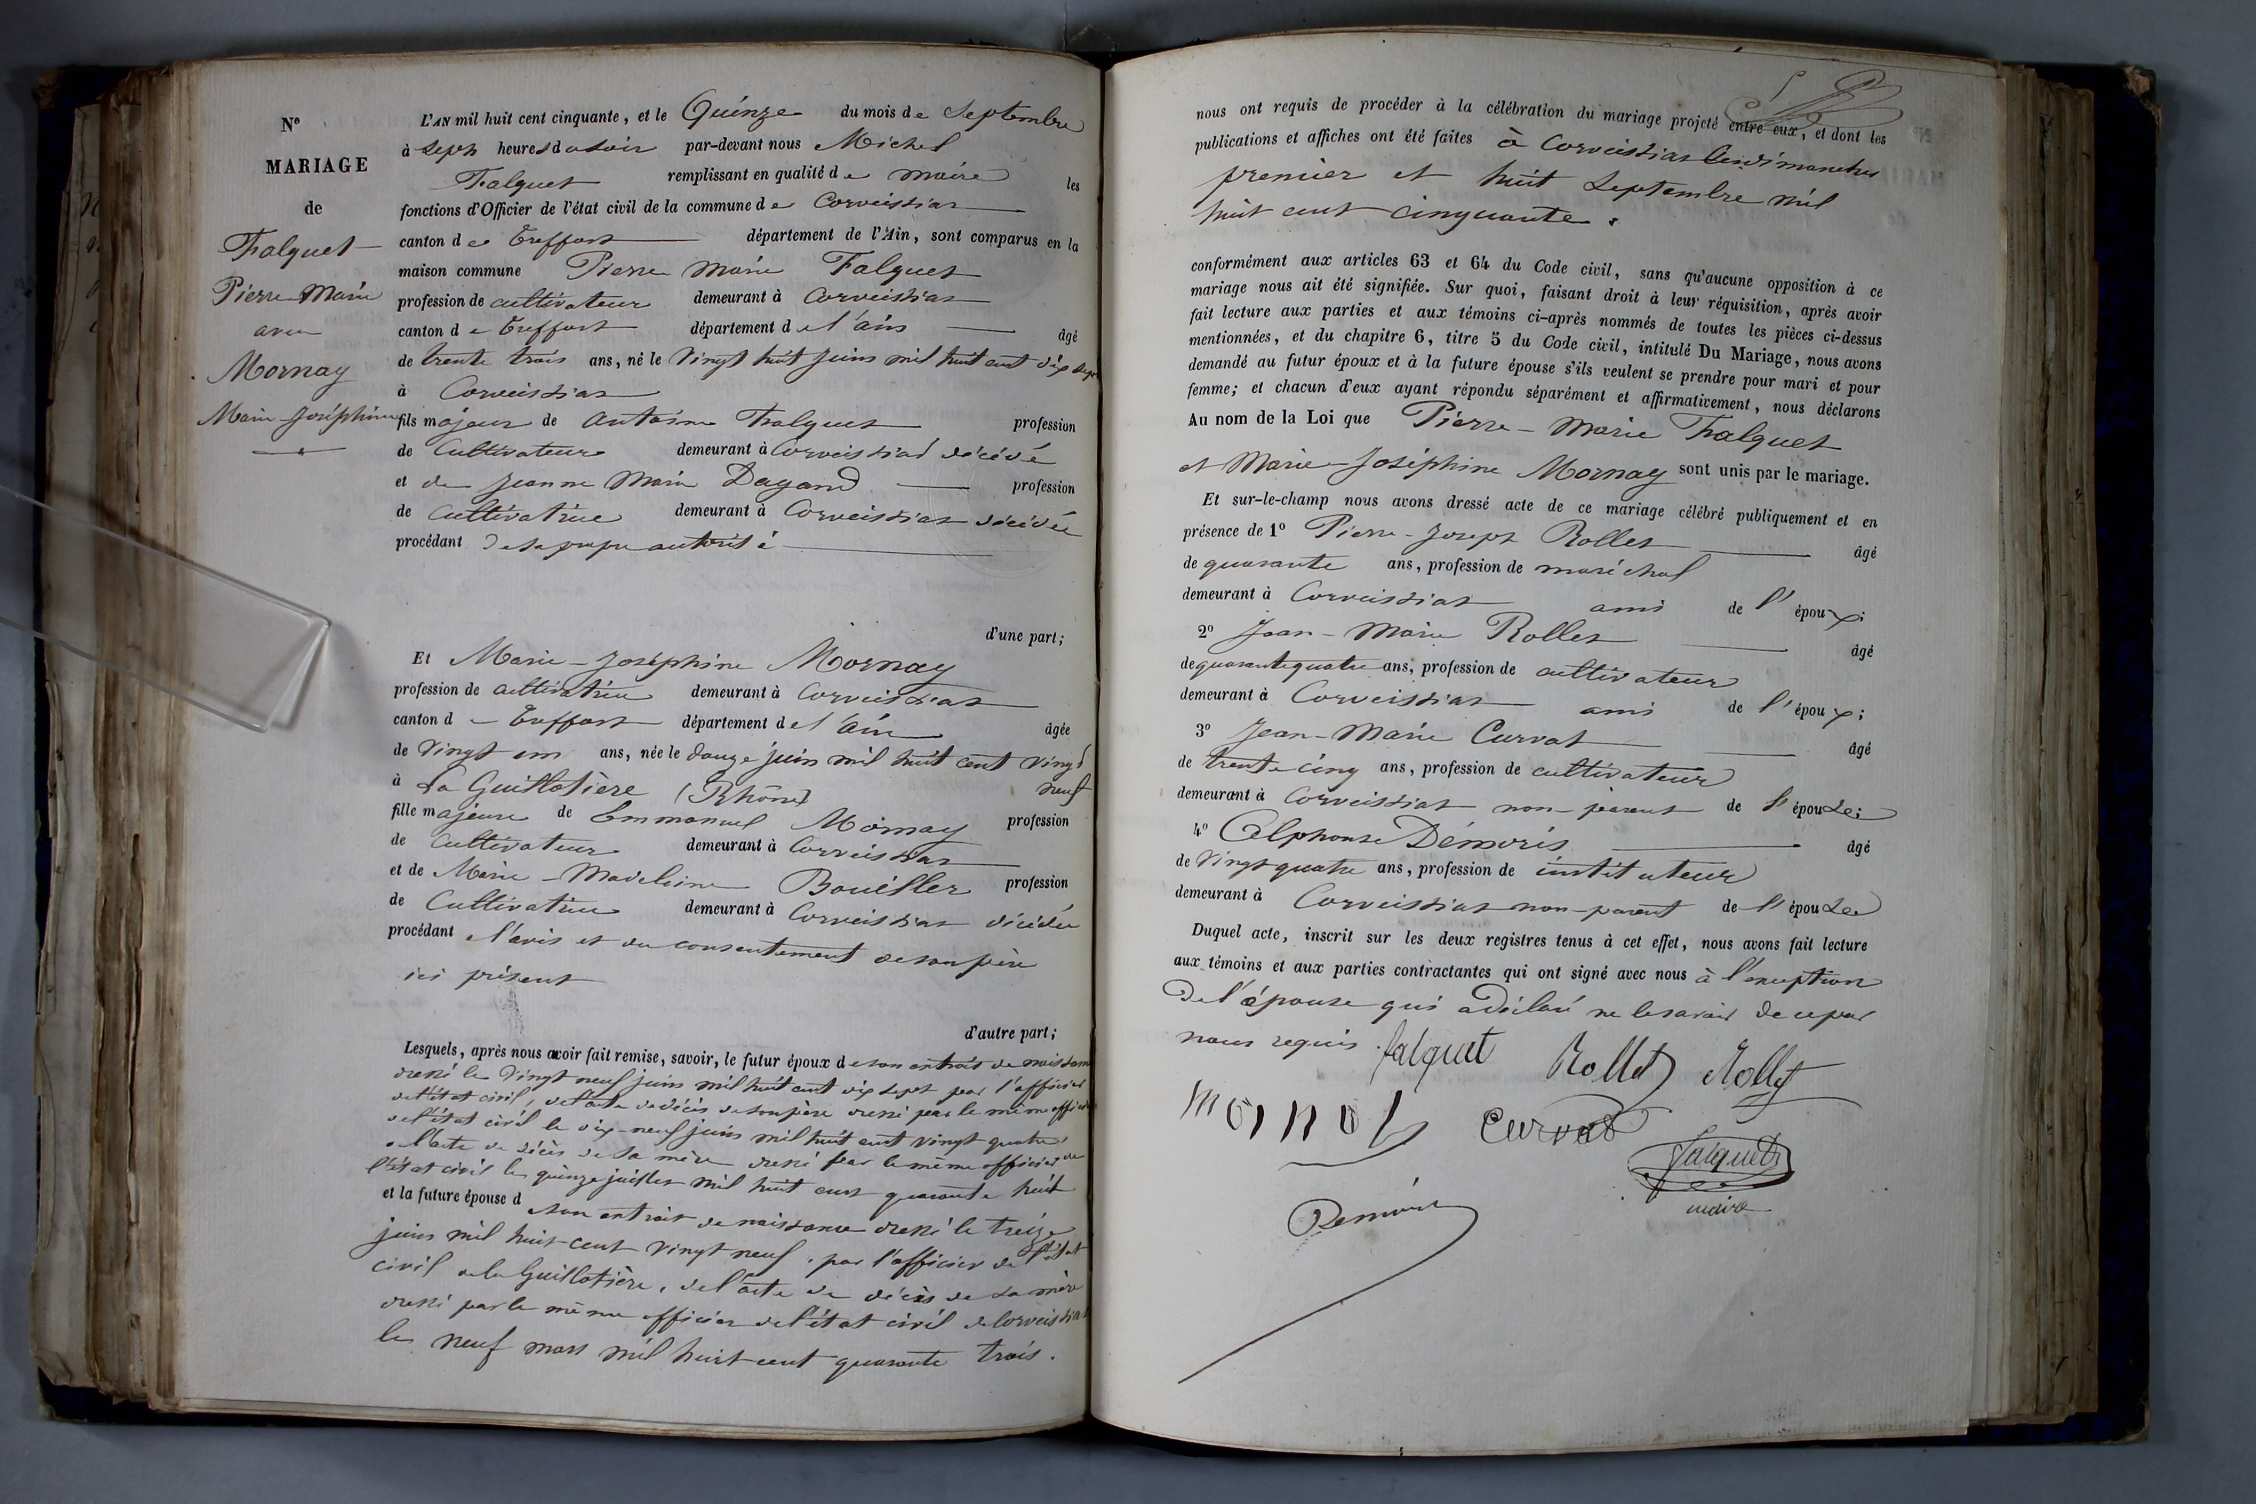 N°
MARIAGE
de
Falquet
Pierre-Marie
avec
Mornay
Marie-Joséphine
L'AN mil huit cent cinquante, et le Quinze du mois de Septembre
à Sept heures du soir par-devant nous Michel
Falquet remplissant en qualité de maire les
fonctions d'Officier de l'état civil de la commune de Corveissiat
canton de Treffort département de l'Ain, sont comparus en la
maison commune Pierre Marie Falquet
profession de cultivateur demeurant à Corveissiat
canton de Treffort département de l'ain âgé
de trente trois ans, né le Vingt huit juin mil huit cent dix sept
à Corveissiat
fils majeur de Antoine Falquet profession
de Cultivateur demeurant à Corveissiat décédé
et de Jeanne Marie Dagand profession
de Cultivatrice demeurant à Corveissiat décédée
procédant de sa propre autorité
d'une part;
Et Marie-Joséphine Mornay
profession de cultivatrice demeurant à Corveissiat
canton de Treffort département de l'ain âgée
de Vingt un ans, née le douze juin mil huit cent vingt
neuf
à La Guillotière (Rhône)
fille majeure de Emmanuel Mornay profession
de Cultivateur demeurant à Corveissiat
et de Marie-Madeleine profession
de Cultivatrice demeurant à Corveissiat décédée
procédant de l'avis et du consentement de son père
ici présent
d'autre part;
Lesquels, après nous avoir fait remise, savoir, le futur époux de son extrait de naissance
dressé le Vingt neuf juin mil huit cent dix sept par l'officier
de l'état civil, de l'acte de décès de son père dressé par le même officier
de l'état civil le dix-neuf juin mil huit cent vingt quatre
de l'acte de décès de sa mère dressé par le même officier de
l'état civil le quinze juillet mil huit cent quarante huit
et la future épouse de son extrait de naissance dressé le treize
juin mil huit cent vingt neuf, par l'officier de l'état
civil de la Guillotière, de l'acte de décès de sa mère
dressé par le même officier de l'état civil de Corveissiat
le neuf mars mil huit cent quarante trois.
nous ont requis de procéder à la célébration du mariage projeté entre eux, et dont les
publications et affiches ont été faites à Corveissiat les dimanches
premier et huit Septembre mil
huit cent cinquante.
conformément aux articles 63 et 64 du Code civil, sans qu'aucune opposition à ce
mariage nous ait été signifiée. Sur quoi, faisant droit à leur réquisition, après avoir
fait lecture aux parties et aux témoins ci-après nommés de toutes les pièces ci-dessus
mentionnées, et du chapitre 6, titre 5 du Code civil, intitulé Du Mariage, nous avons
demandé au futur époux et à la future épouse s'ils veulent se prendre pour mari et pour
femme; et chacun d'eux ayant répondu séparément et affirmativement, nous déclarons
Au nom de la Loi que Pierre-Marie Falquet
et Marie-Joséphine Mornay sont unis par le mariage.
Et sur-le-champ nous avons dressé acte de ce mariage célébré publiquement et en
présence de 1° Pierre-Joseph Rollet âgé
de quarante ans, profession de maréchal
demeurant à Corveissiat ami de l'époux;
2° Jean-Marie Rollet âgé
de quarante quatre ans, profession de cultivateur
demeurant à Corveissiat ami de l'époux;
3° Jean-Marie Curvat âgé
de trente cinq ans, profession de cultivateur
demeurant à Corveissiat non-parent de l'épouse;
4° Alphonse Démoris âgé
de Vingt quatre ans, profession de instituteur
demeurant à Corveissiat non-parent de l'épouse
Duquel acte, inscrit sur les deux registres tenus à cet effet, nous avons fait lecture
aux témoins et aux parties contractantes qui ont signé avec nous à l'exception
de l'épouse qui a déclaré ne le savoir de ce par
nous requis. falquet Rollet Rollet
Curvat
falquet
maire